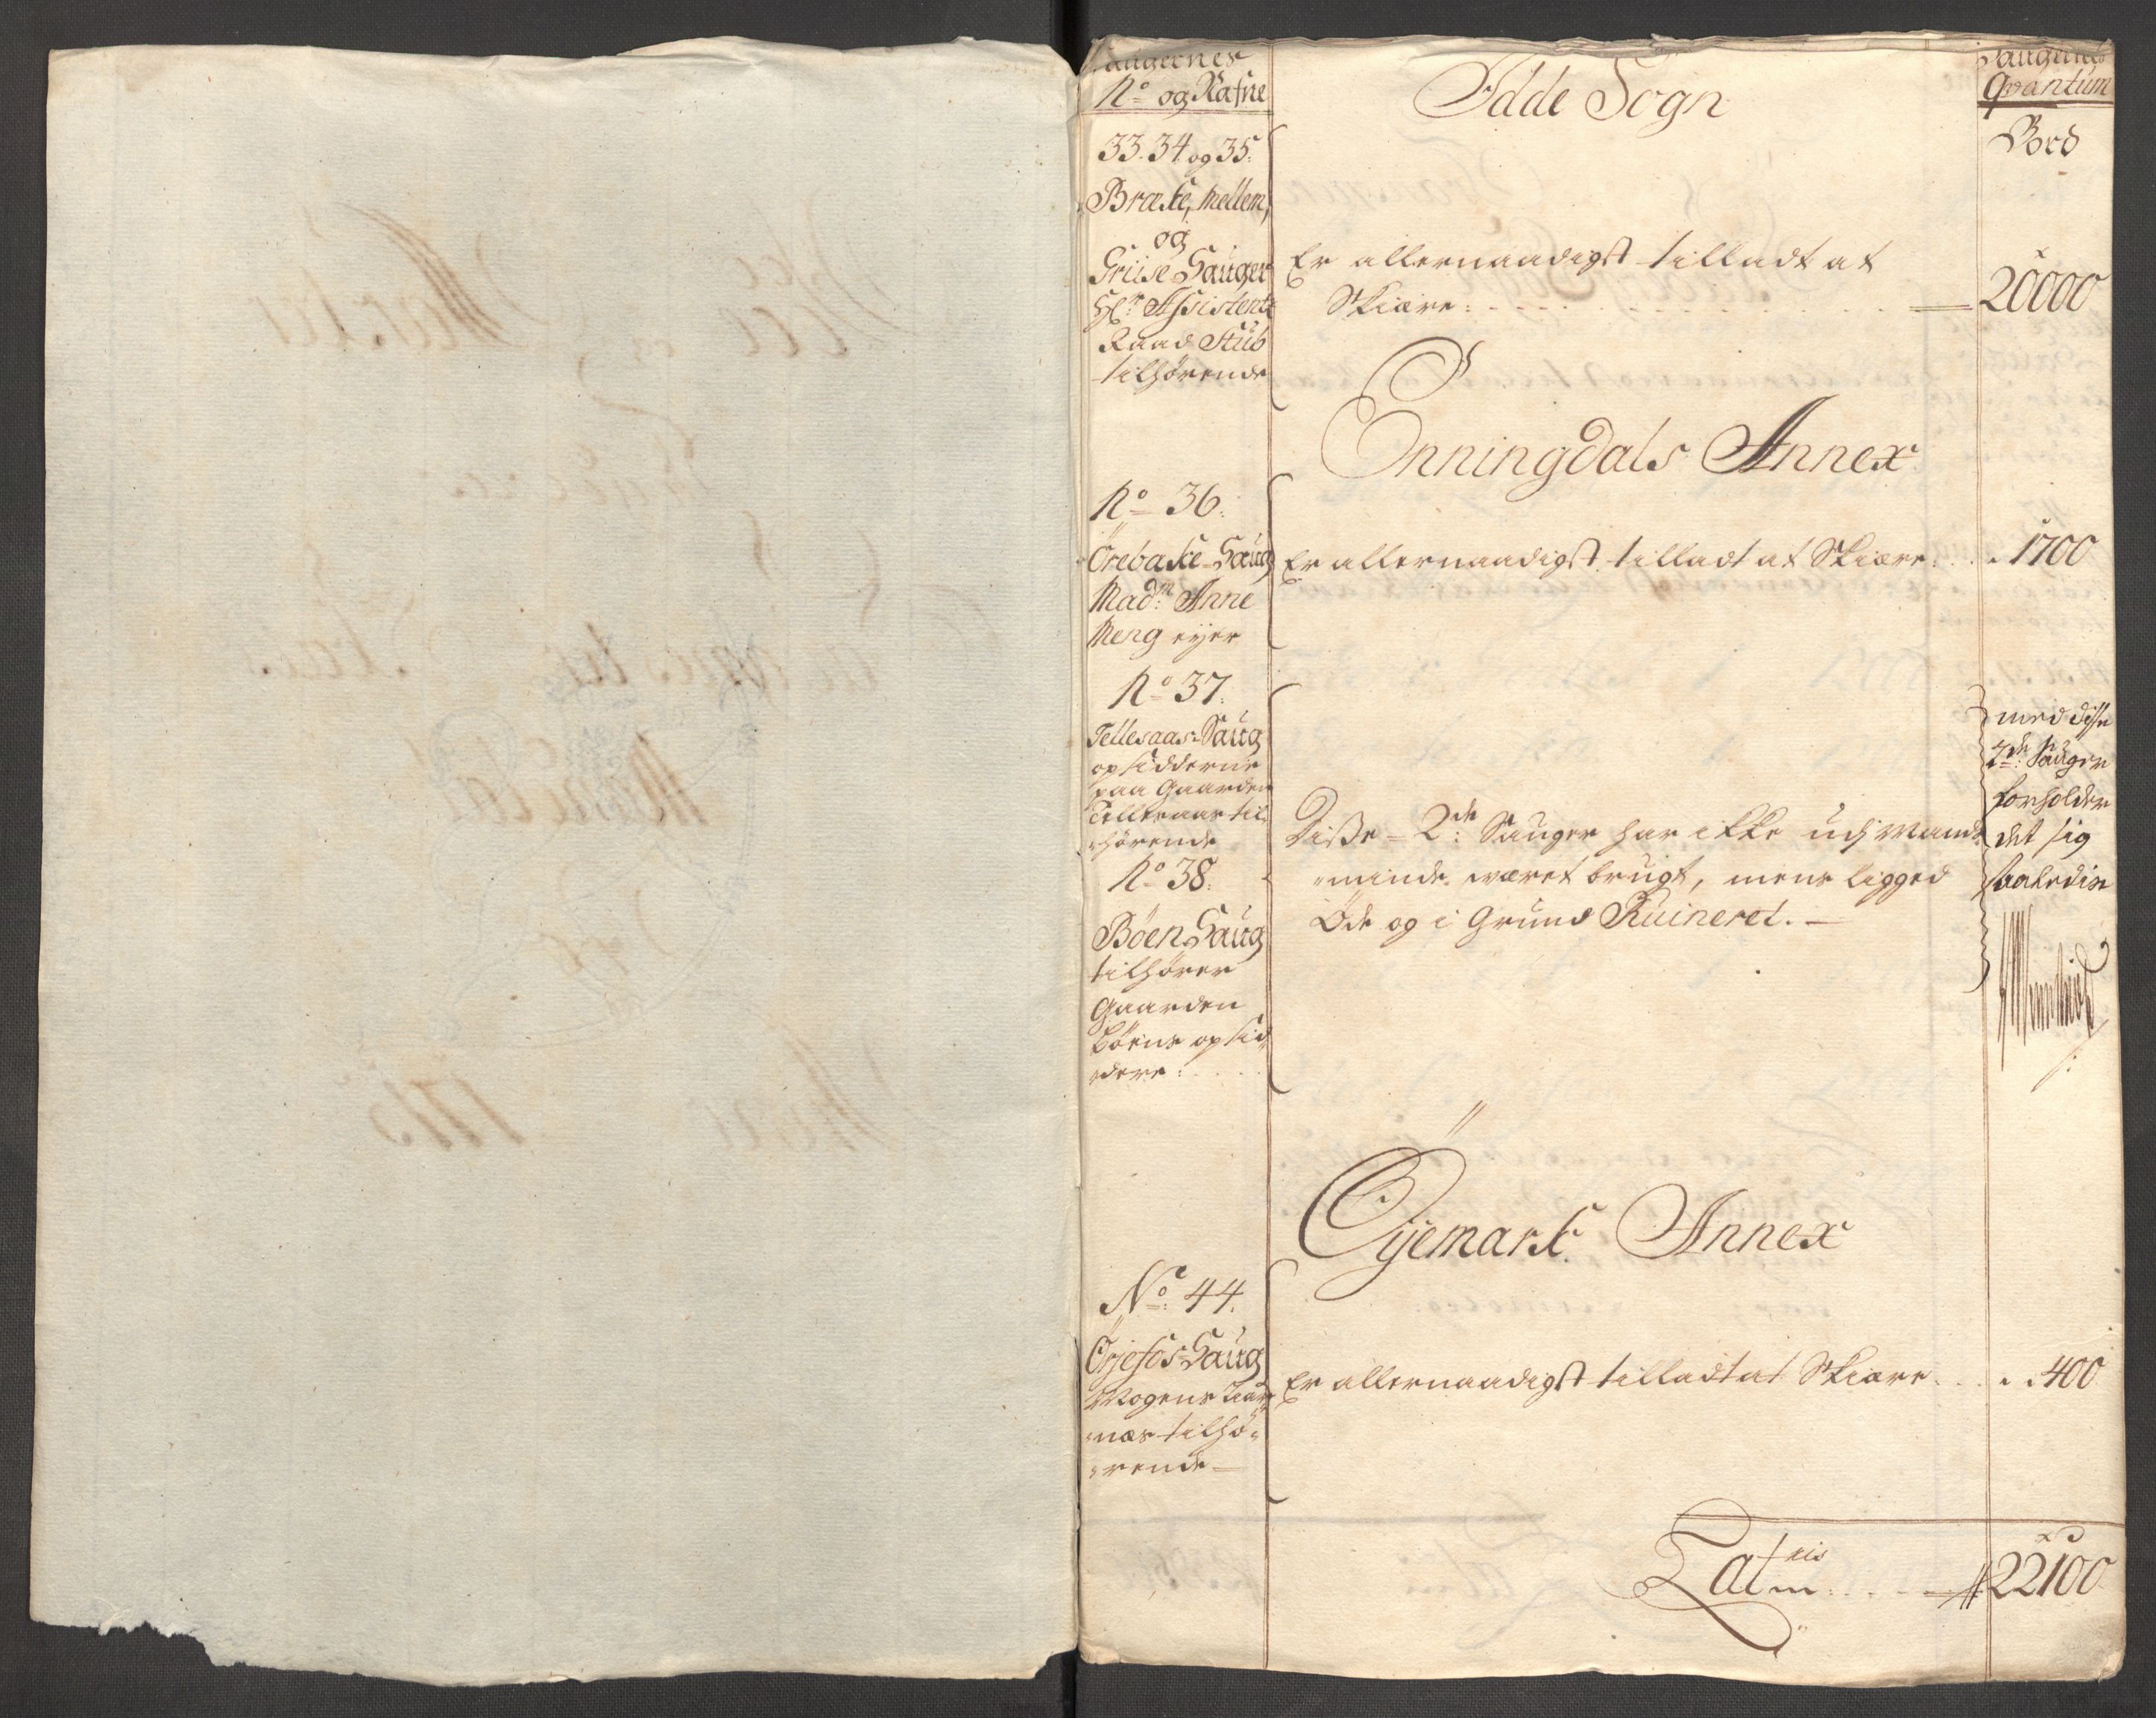 Saugernes
No og Nafne
Idde Sogn
Saugernes
Qvantum
Bord
33. 34. og 35.
Bræke, Mellem,
og
Griise Sauger
Hr. Assistentz
Raad Stub
tilhørende
Er allernaadigst tilladt at
Skiære:
20000
Enningdals Annex
No 36.
Örebække Saug
Madm Anne
Meng eyer
Er allernaadigst tilladt at Skiære
1700
No 37.
Tellesaas Saug
opsidderne
paa Gaarden
Tellesaas til
hørende
No 38.
Böen Saug
tilhører
Gaarden
Böens opsid
dere:
Diße 2de Sauger har ikke udj Mands
minde været brugt, mens ligged
Öde og i Grund Ruineret.
med disse
2de Sauger
forholder
det sig
saaledis
Öyemark Annex
No. 44.
Örjefos Saug
Mogens
næs tilhø-
rende
Er allernaadigst tilladt at Skiære
400
Latris
22100